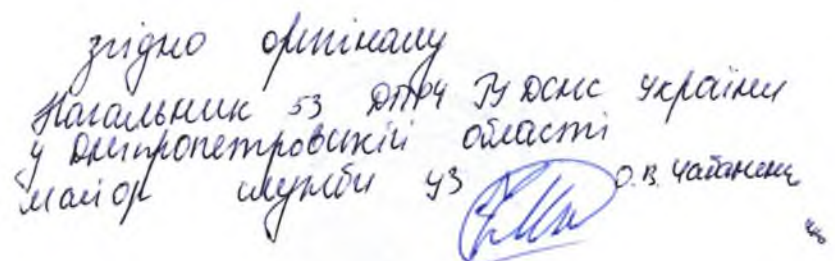 згідно оригіналу
Начальник 53 ДПРЧ ГУ ДСНС України
у Дніпропетровській області
майор служби ЦЗ О.В. Чабаненко